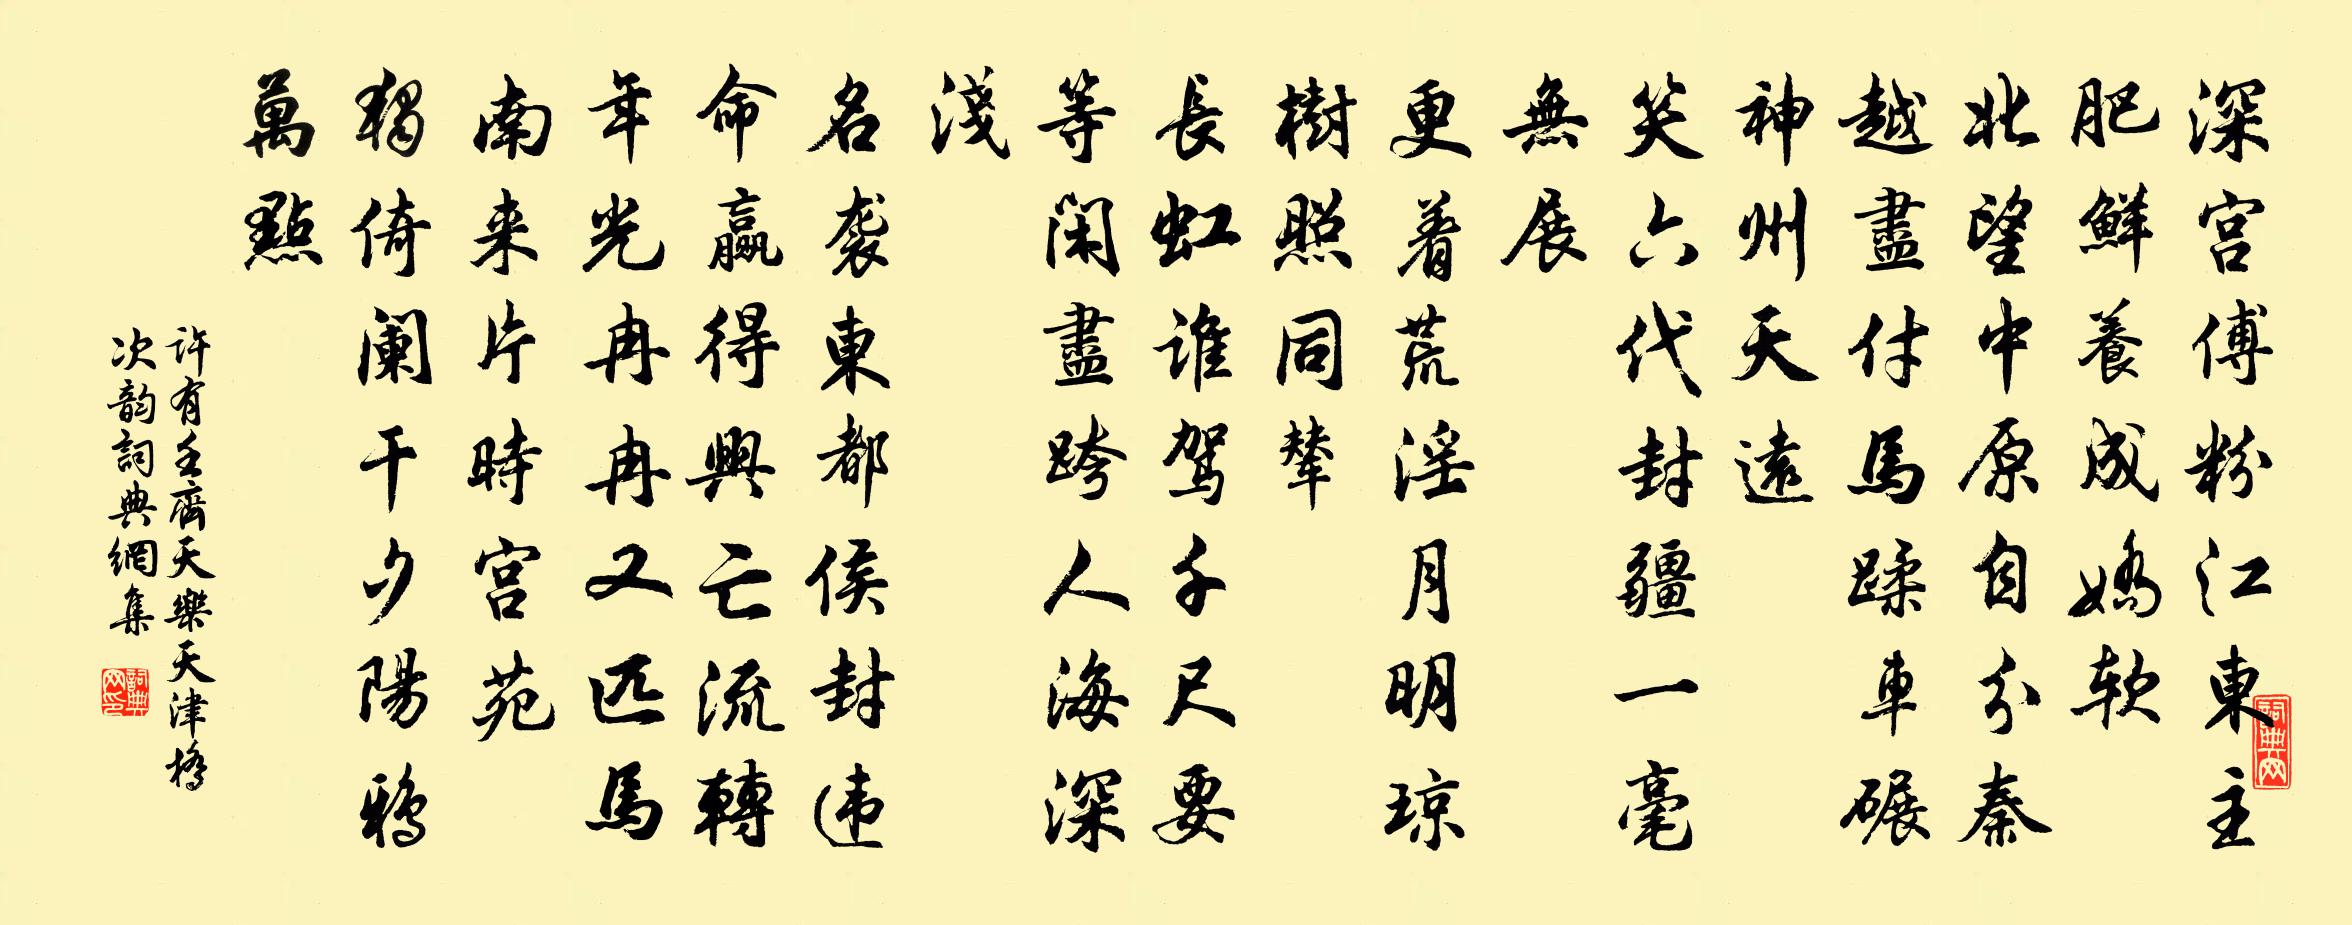 深宮傅粉江東主
肥鮮養成嬌软
北望中原自分秦
越盡付馬蹂車碾
神州天遠
笑六代封疆一毫
無展
更着荒淫月明琼
樹照同輦
長虹谁駕千尺要
等閑盡跨人海深
淺
名袭東都侯封违
命贏得興亡流轉
年光冉冉又匹馬
南来片時宮苑
獨倚阑干夕陽鴉
萬點
许有壬齊天樂天津橋
次韵詞典網集
詞典网
詞典网印